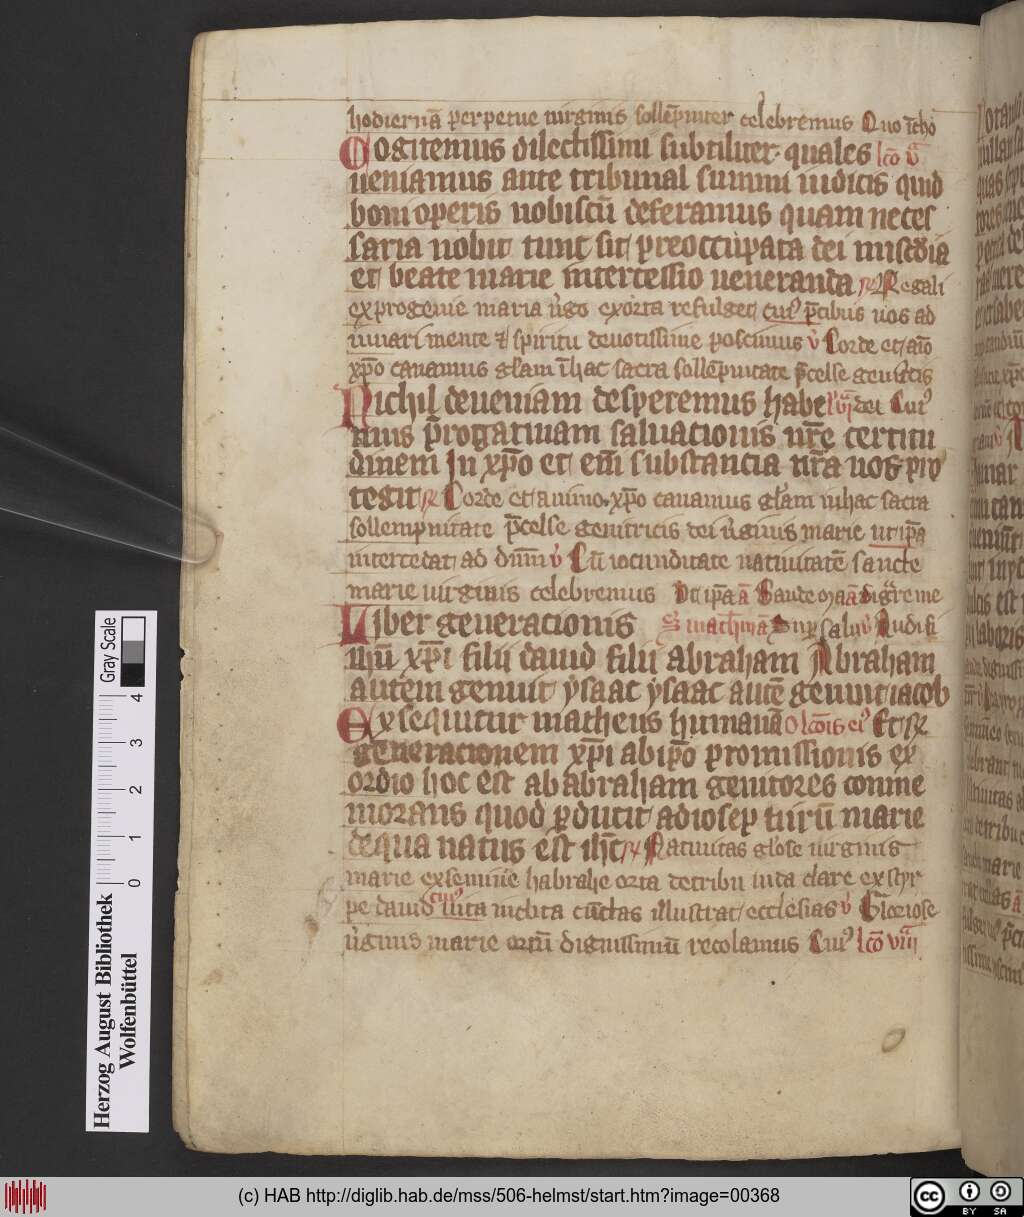 hodiernā perpetue uirginis sollēpniter celebremus Quo
Cogitemus dilectissimi subtiliter quales lcō v̄
ueniamus ante tribunal summi iudicis quid
boni operis nobiscū deferamus quam neces
saria nobit tunc sit preoccupata dei misc̄dia
et beate marie intercessio ueneranda Regali
ex progenie maria v̊go exorta refulget cui᷒ p̄cibus nos ad
iuuari mente ⁊ spiritu deuotissime poscimus v̊ Corde et aīo
xp̄o canamus gl̄am ī hac sacra sollēpnitate p̄celse
Nichil de ueniam desperemus habe dei Cui᷒
mus p̄rogatiuam saluacionis nr̄e certitu
dinem In xp̄o et eni᷒ substancia nr̄a nos pro
tegit Corde et animo xp̄o canamus gl̄am in hac sacra
sollempnitate p̄celse genitricis dei v̊ginis marie ut ip̄a
intercedat ad dnm̄ v̊ Cū iocunditate natiuitatē sancte
marie uirginis celebremus Ut ip̄a ā Gaude ma ā Digre me
Liber generacionis Sup salu v̊ Audi fi
ihū xp̄i filii dauid filii abraham Abraham
autem genuit ysaac ysaac autē genuit iacob
Exsequitur matheus humanā Et
generacionem xp̄i ab ip̄o promissionis ex
ordio hoc est ab abraham genitores comme
morans quod p̄ducit ad iosep uirū marie
de qua natus est ihc̄ Natiuitas gl̄ose uirginis
marie ex semine habrahe orta de tribu iuda clare ex styr
pe dauid cui᷒ uita inclita cūctas illustrat ecclesias v̊ Gloriose
v̊ginis marie ortū dignissimū recolamus Cui᷒ lcō viii
Herzog August Bibliothek
Wolfenbüttel
Gray Scale
0 1 2 3 4
(c) HAB http://diglib.hab.de/mss/506-helmst/start.htm?image=00368
cc BY SA